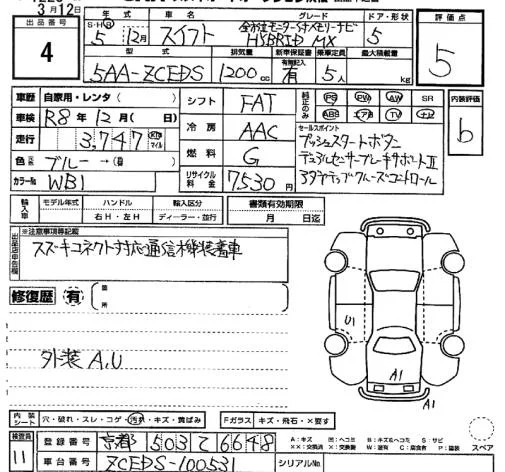 3月12日
出品番号
4
S・H・R 年 車名 グレード ドア・形状 評価点
5 12月 スイフト HYBRID MX 5 5
型式 排気量 新車保証書 乗車定員 最大積載量
有無記入
5AA-ZCEDS 1200cc 有 5人 kg
車歴 自家用・レンタ( ) シフト FAT 純正のみ PS PW AW SR 内装評価
ABS エアB TV ナビ
b
車検 R8年12月( 日) 冷房 AAC
セールスポイント
プッシュスタートボタン
走行 3,747 km マイル
デュアルセンサーブレーキサポートⅡ
燃料 G
アダプティブクルーズコントロール
色 ブルー→( )
カラーNo WB1 リサイクル料金 7,530円
輸入車 モデル年式 ハンドル 輸入区分 書類有効期限
右H・左H ディーラー・並行 月 日迄
出品店申告欄
※注意事項等記載
スズーキコネクト対応通信機装着車
修復歴 有 箇所
U1
外装 A,U
A1
A1
内装 シート 穴・破れ・スレ・コゲ・汚れ・キズ・黄ばみ Fガラス キズ・飛石・×要す スペア
検査員
11
登録番号 京都 503 て 6648
A:キズ U:凹ミ B:キズ&凹ミ S:サビ
XX:交換済 X:要交換 W:波有 C:腐食有 P:塗装
車台番号 ZCEDS-100531 シリアルNo.